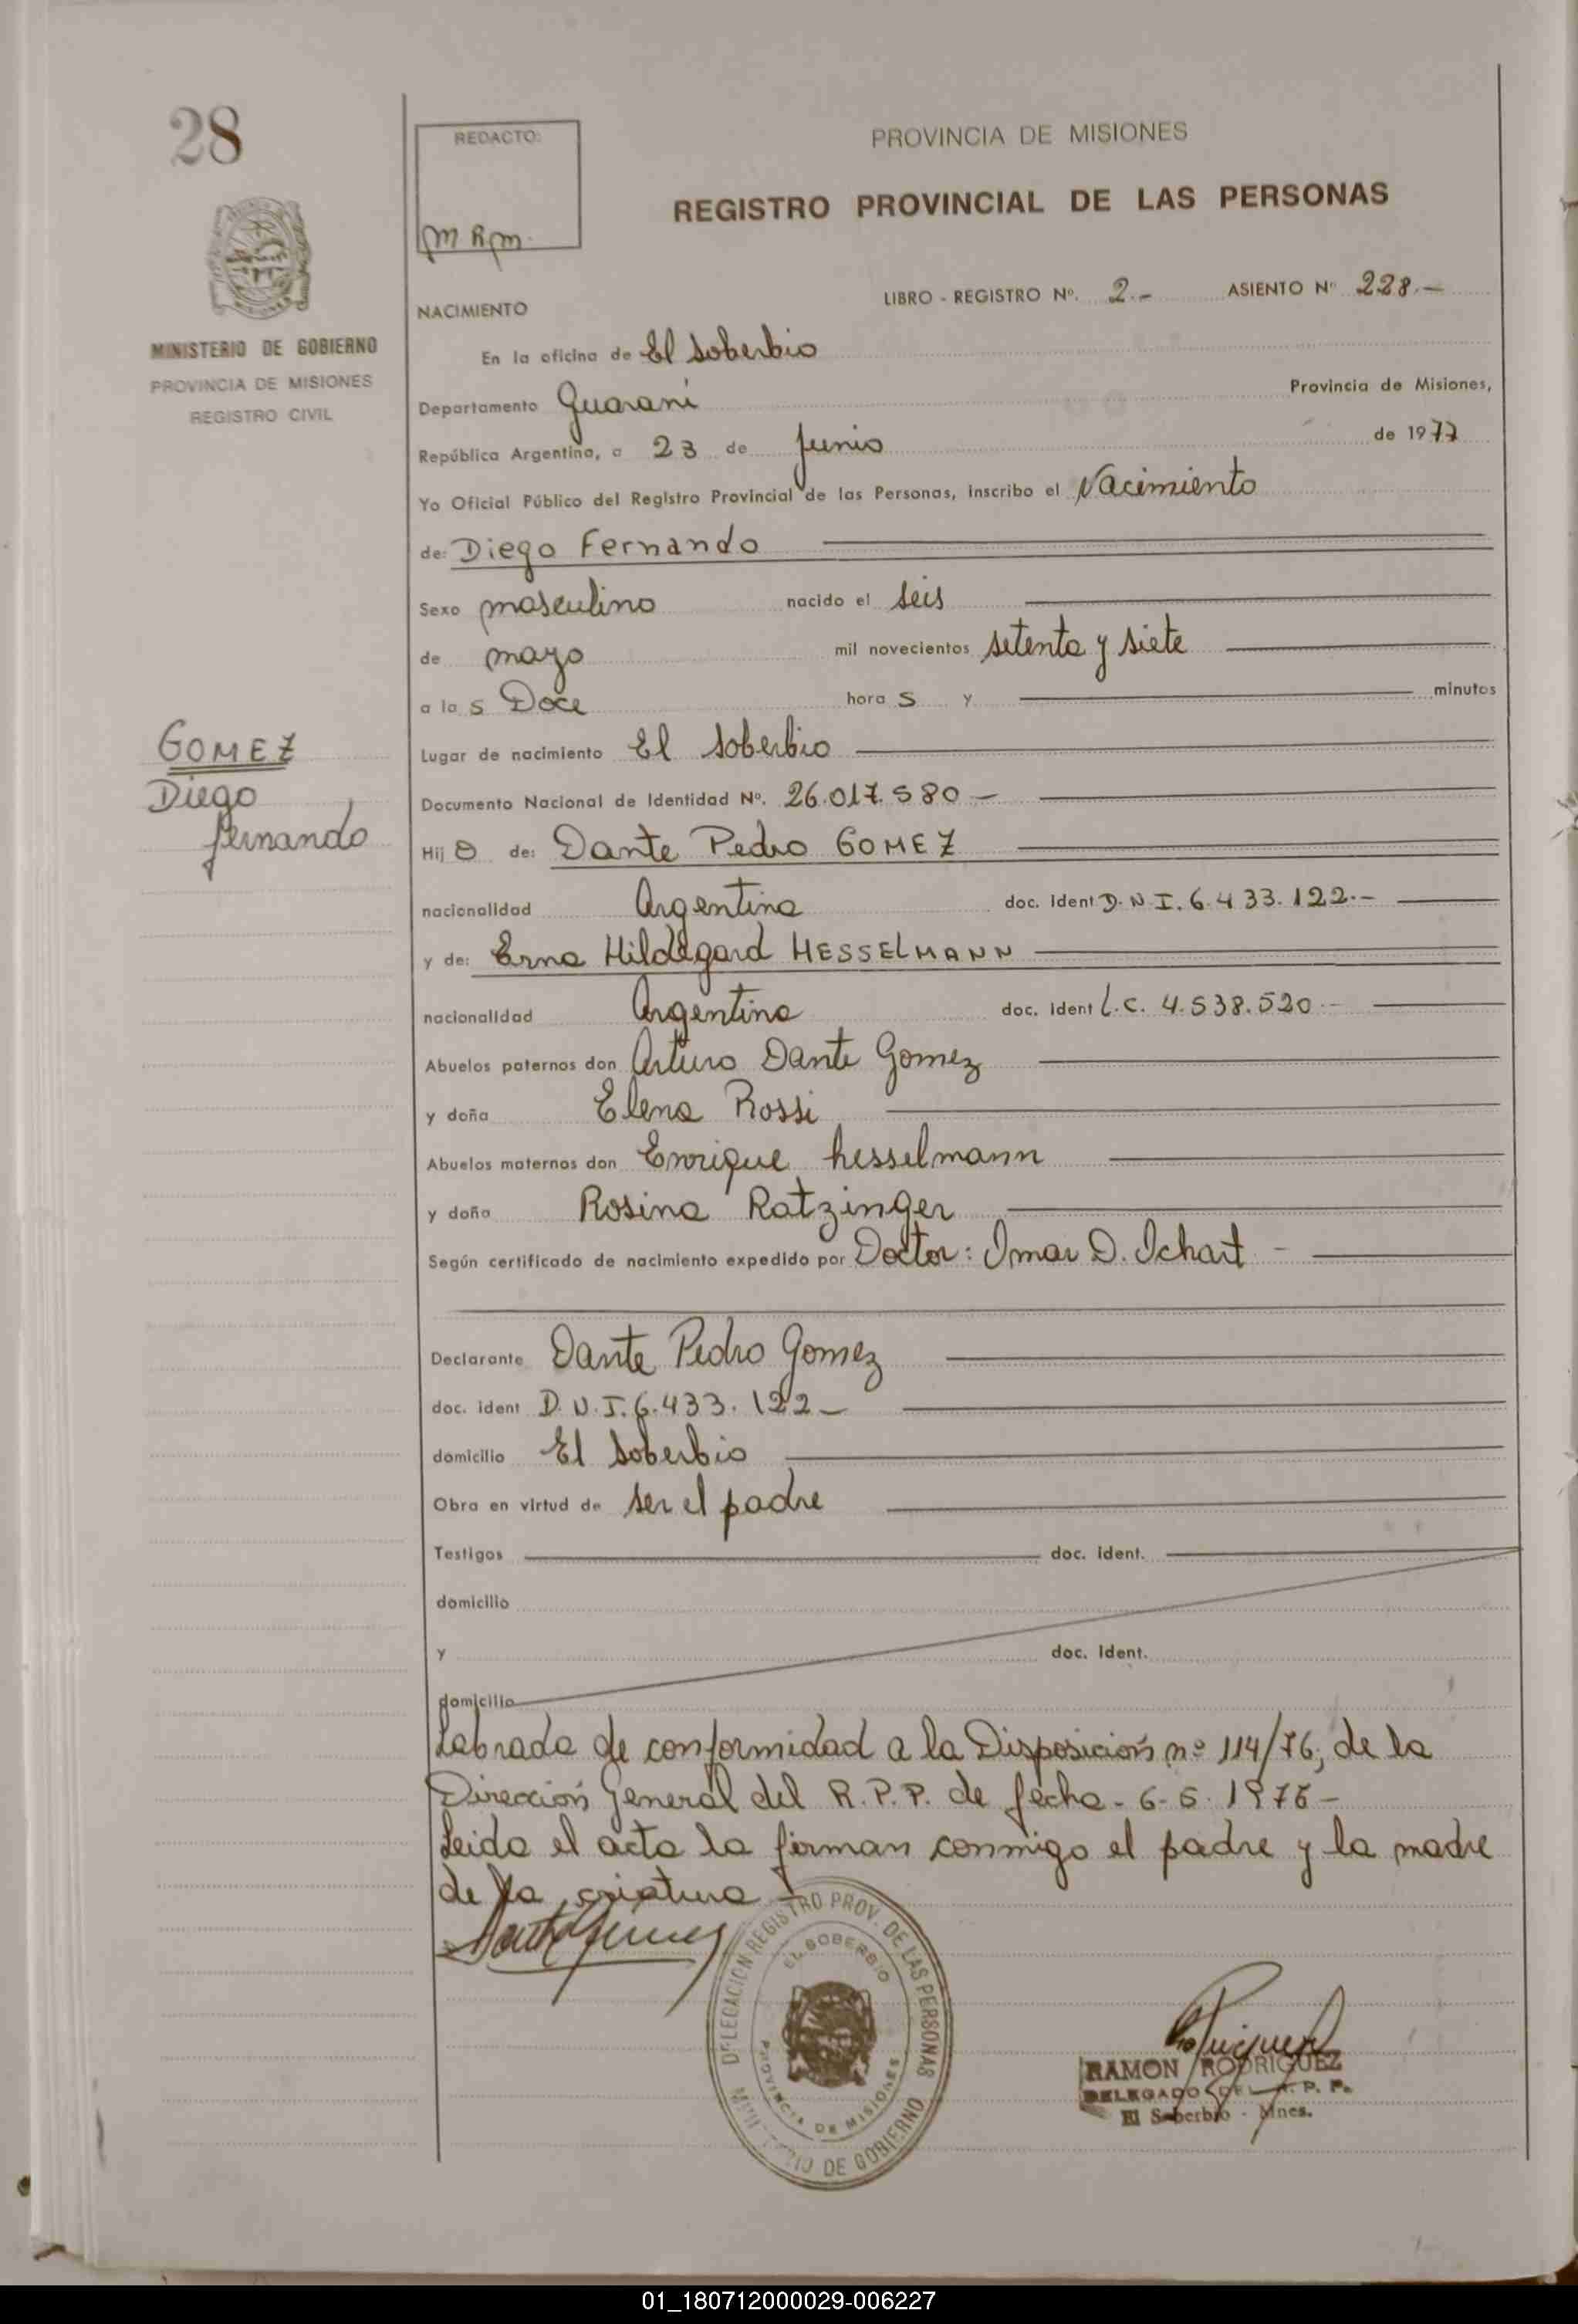 28
REDACTO:
M R M.
MINISTERIO DE GOBIERNO
PROVINCIA DE MISIONES
REGISTRO CIVIL
PROVINCIA DE MISIONES
REGISTRO PROVINCIAL DE LAS PERSONAS
LIBRO - REGISTRO Nº. 2.- ASIENTO Nº 228.-
NACIMIENTO
En la oficina de El Soberbio
Departamento Guaraní Provincia de Misiones,
República Argentina, a 23 de Junio de 1977
Yo Oficial Público del Registro Provincial de las Personas, inscribo el Nacimiento
de: Diego Fernando
Sexo masculino nacido el seis
de mayo mil novecientos setenta y siete
a la s Doce hora s y minutos
Lugar de nacimiento El Soberbio
GOMEZ
Diego
Fernando
Documento Nacional de Identidad Nº. 26.017.580 -
Hij o de: Dante Pedro GOMEZ
nacionalidad Argentina doc. ident D.N.I. 6.433.122.-
y de: Erna Hildegard HESSELMANN
nacionalidad Argentina doc. ident L.C. 4.538.520 -
Abuelos paternos don Arturo Dante Gomez
y doña Elena Rossi
Abuelos maternos don Enrique hesselmann
y doña Rosina Ratzinger
Según certificado de nacimiento expedido por Doctor: Omar D. Ichart -
Declarante Dante Pedro Gomez
doc. ident D.N.I. 6.433.122 -
domicilio El Soberbio
Obra en virtud de ser el padre
Testigos doc. ident.
domicilio
y doc. ident.
domicilio
Labrada de conformidad a la Disposición nº 114/76, de la
Dirección General del R.P.P. de fecha - 6-5-1976 -
Leida el acta la firman conmigo el padre y la madre
de la criatura -
DELEGACION REGISTRO PROV. DE LAS PERSONAS
EL SOBERBIO
PROVINCIA DE MISIONES
MINISTERIO DE GOBIERNO
RAMON RODRIGUEZ
DELEGADO DEL R. P. P.
El Soberbio - Mnes.
01_180712000029-006227